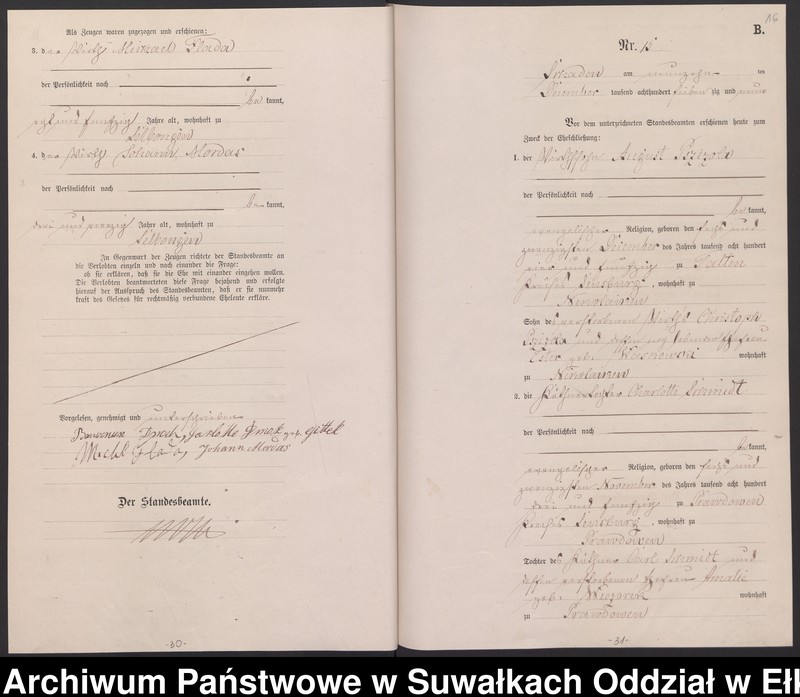 Als Zeugen waren zugezogen und erschienen:
3. der Wirth Michael Flada
der Persönlichkeit nach
bekannt,
acht und funfzig Jahre alt, wohnhaft zu
Selbongen
4. der Wirth Johann Mordas
der Persönlichkeit nach
bekannt,
drei und vierzig Jahre alt, wohnhaft zu
Selbongen
In Gegenwart der Zeugen richtete der Standesbeamte an
die Verlobten einzeln und nach einander die Frage:
ob sie erklären, daß sie die Ehe mit einander eingehen wollen.
Die Verlobten beantworteten diese Frage bejahend und erfolgte
hierauf der Ausspruch des Standesbeamten, daß er sie nunmehr
kraft des Gesetzes für rechtmäßig verbundene Eheleute erkläre.
Vorgelesen, genehmigt und unterschrieben
Johann Mordas
Der Standesbeamte.
-30-
16
B.
Nr. 15
am neunzehn ten
Dezember tausend achthundert sieben zig und neun
Vor dem unterzeichneten Standesbeamten erschienen heute zum
Zweck der Eheschließung:
1. der Wirthssohn August
der Persönlichkeit nach
bekannt,
evangelischer Religion, geboren den sechs und
zwanzigsten Dezember des Jahres tausend acht hundert
vier und funfzig zu
Kreises Sensburg, wohnhaft zu
Nikolaiken
Sohn des verstorbenen Wirths Christoph
und dessen noch lebenden Ehefrau
Ester geb. wohnhaft
zu Nikolaiken
2. die Käthnertochter Charlotte Schmidt
der Persönlichkeit nach
bekannt,
evangelischer Religion, geboren den sechs und
zwanzigsten November des Jahres tausend acht hundert
drei und funfzig zu Prawdowen
Kreises Sensburg, wohnhaft zu
Prawdowen
Tochter des Käthners Carl Schmidt und
dessen verstorbenen Ehefrau Amalie
geb. wohnhaft
zu Prawdowen
-31-
Archiwum Państwowe w Suwałkach Oddział w Eł